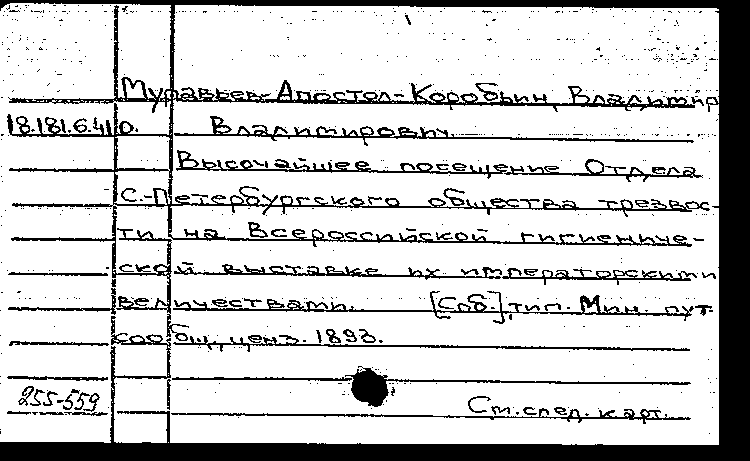 Муравьев-Апостол-Коробьин, Владимир
18.181.6.41 о. Владимирович.
Высочайшее посещение Отдела
С.-Петербургского общества трезвос-
ти на Всероссийской гигиениче-
ской выставке их императорскими
величествами. [Спб.], тип. Мин. пут.
сообщ., ценз. 1893.
255-559
См. след. карт.